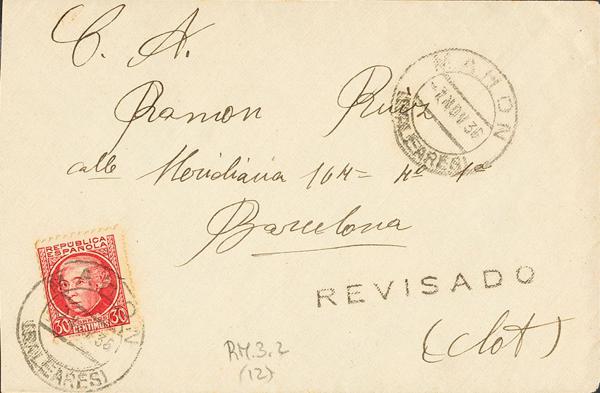 C. A.
Ramon Ruiz
calle Meridiana 164= 4º 1ª
Barcelona
(Clot)
MAHON
7 NOV 36
(BALEARES)
REVISADO
REPUBLICA
ESPAÑOLA
30 30
CORREOS
CENTIMOS
MAHON
36
(BALEARES)
RM.3.2
(12)